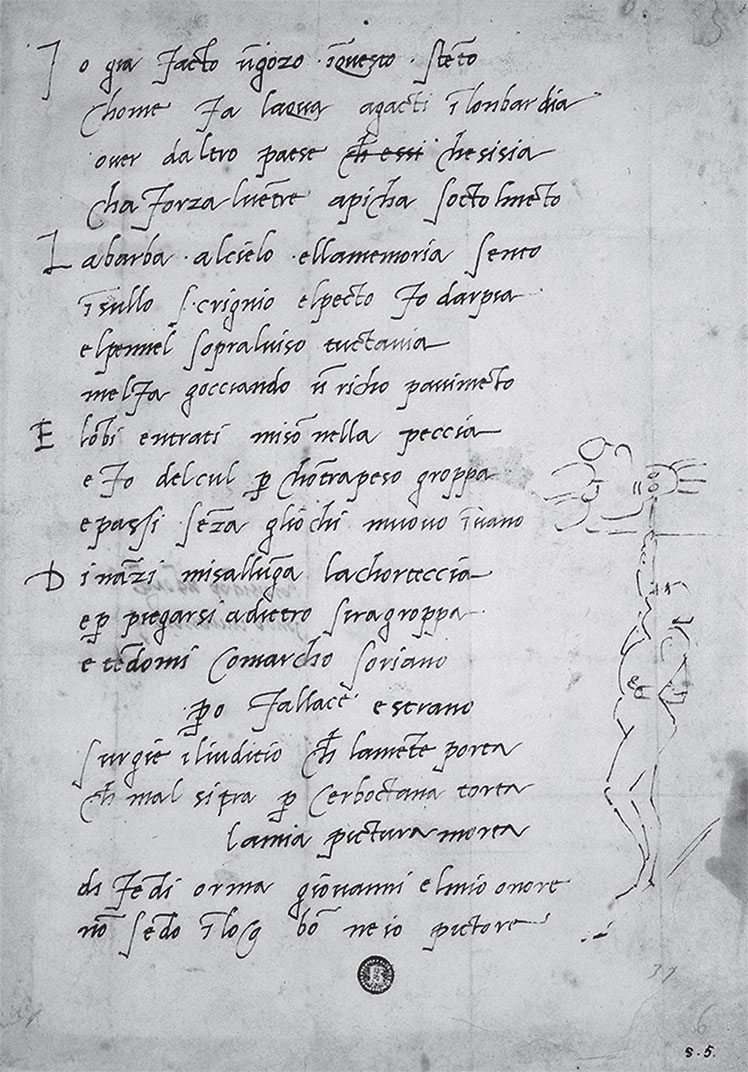 Io gia facto ūgozo īquesto stēto
chome fa laqua agacti ī lonbardia
over daltro paese ch essi chesisia
cha forza lvētre apicha socto lmēto
La barba alcielo ellamemoria sento
īsullo scrignio elpecto fo darpia
elpennel sopraluiso tuctavia
melfa gocciando ū richo pavimēto
E lōbi entrati misō nella peccia
e fo delcul p chōtrapeso groppa
epassi sēza gliochi muovo īvano
Dināzi misallūga lachorteccia
ep piegarsi adietro siragroppa
e tēdomi comarcho soriano
po fallace e strano
surgie iliuditio ch lamēte porta
ch mal sitra p cerboctana torta
lamia pictura morta
di fēdi orma giovanni elmio onore
nō sēdo īloco bō ne io pictore
s.5.